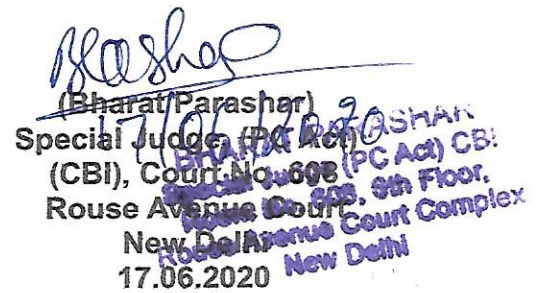 Bharat
17/06/2020
(Bharat Parashar)
Special Judge, (PC Act)
(CBI), Court No. 608
Rouse Avenue Court
New Delhi
17.06.2020
BHARAT PARASHAR
Special Judge (PC Act) CBI
608, 6th Floor,
Rouse Avenue Court Complex
New Delhi